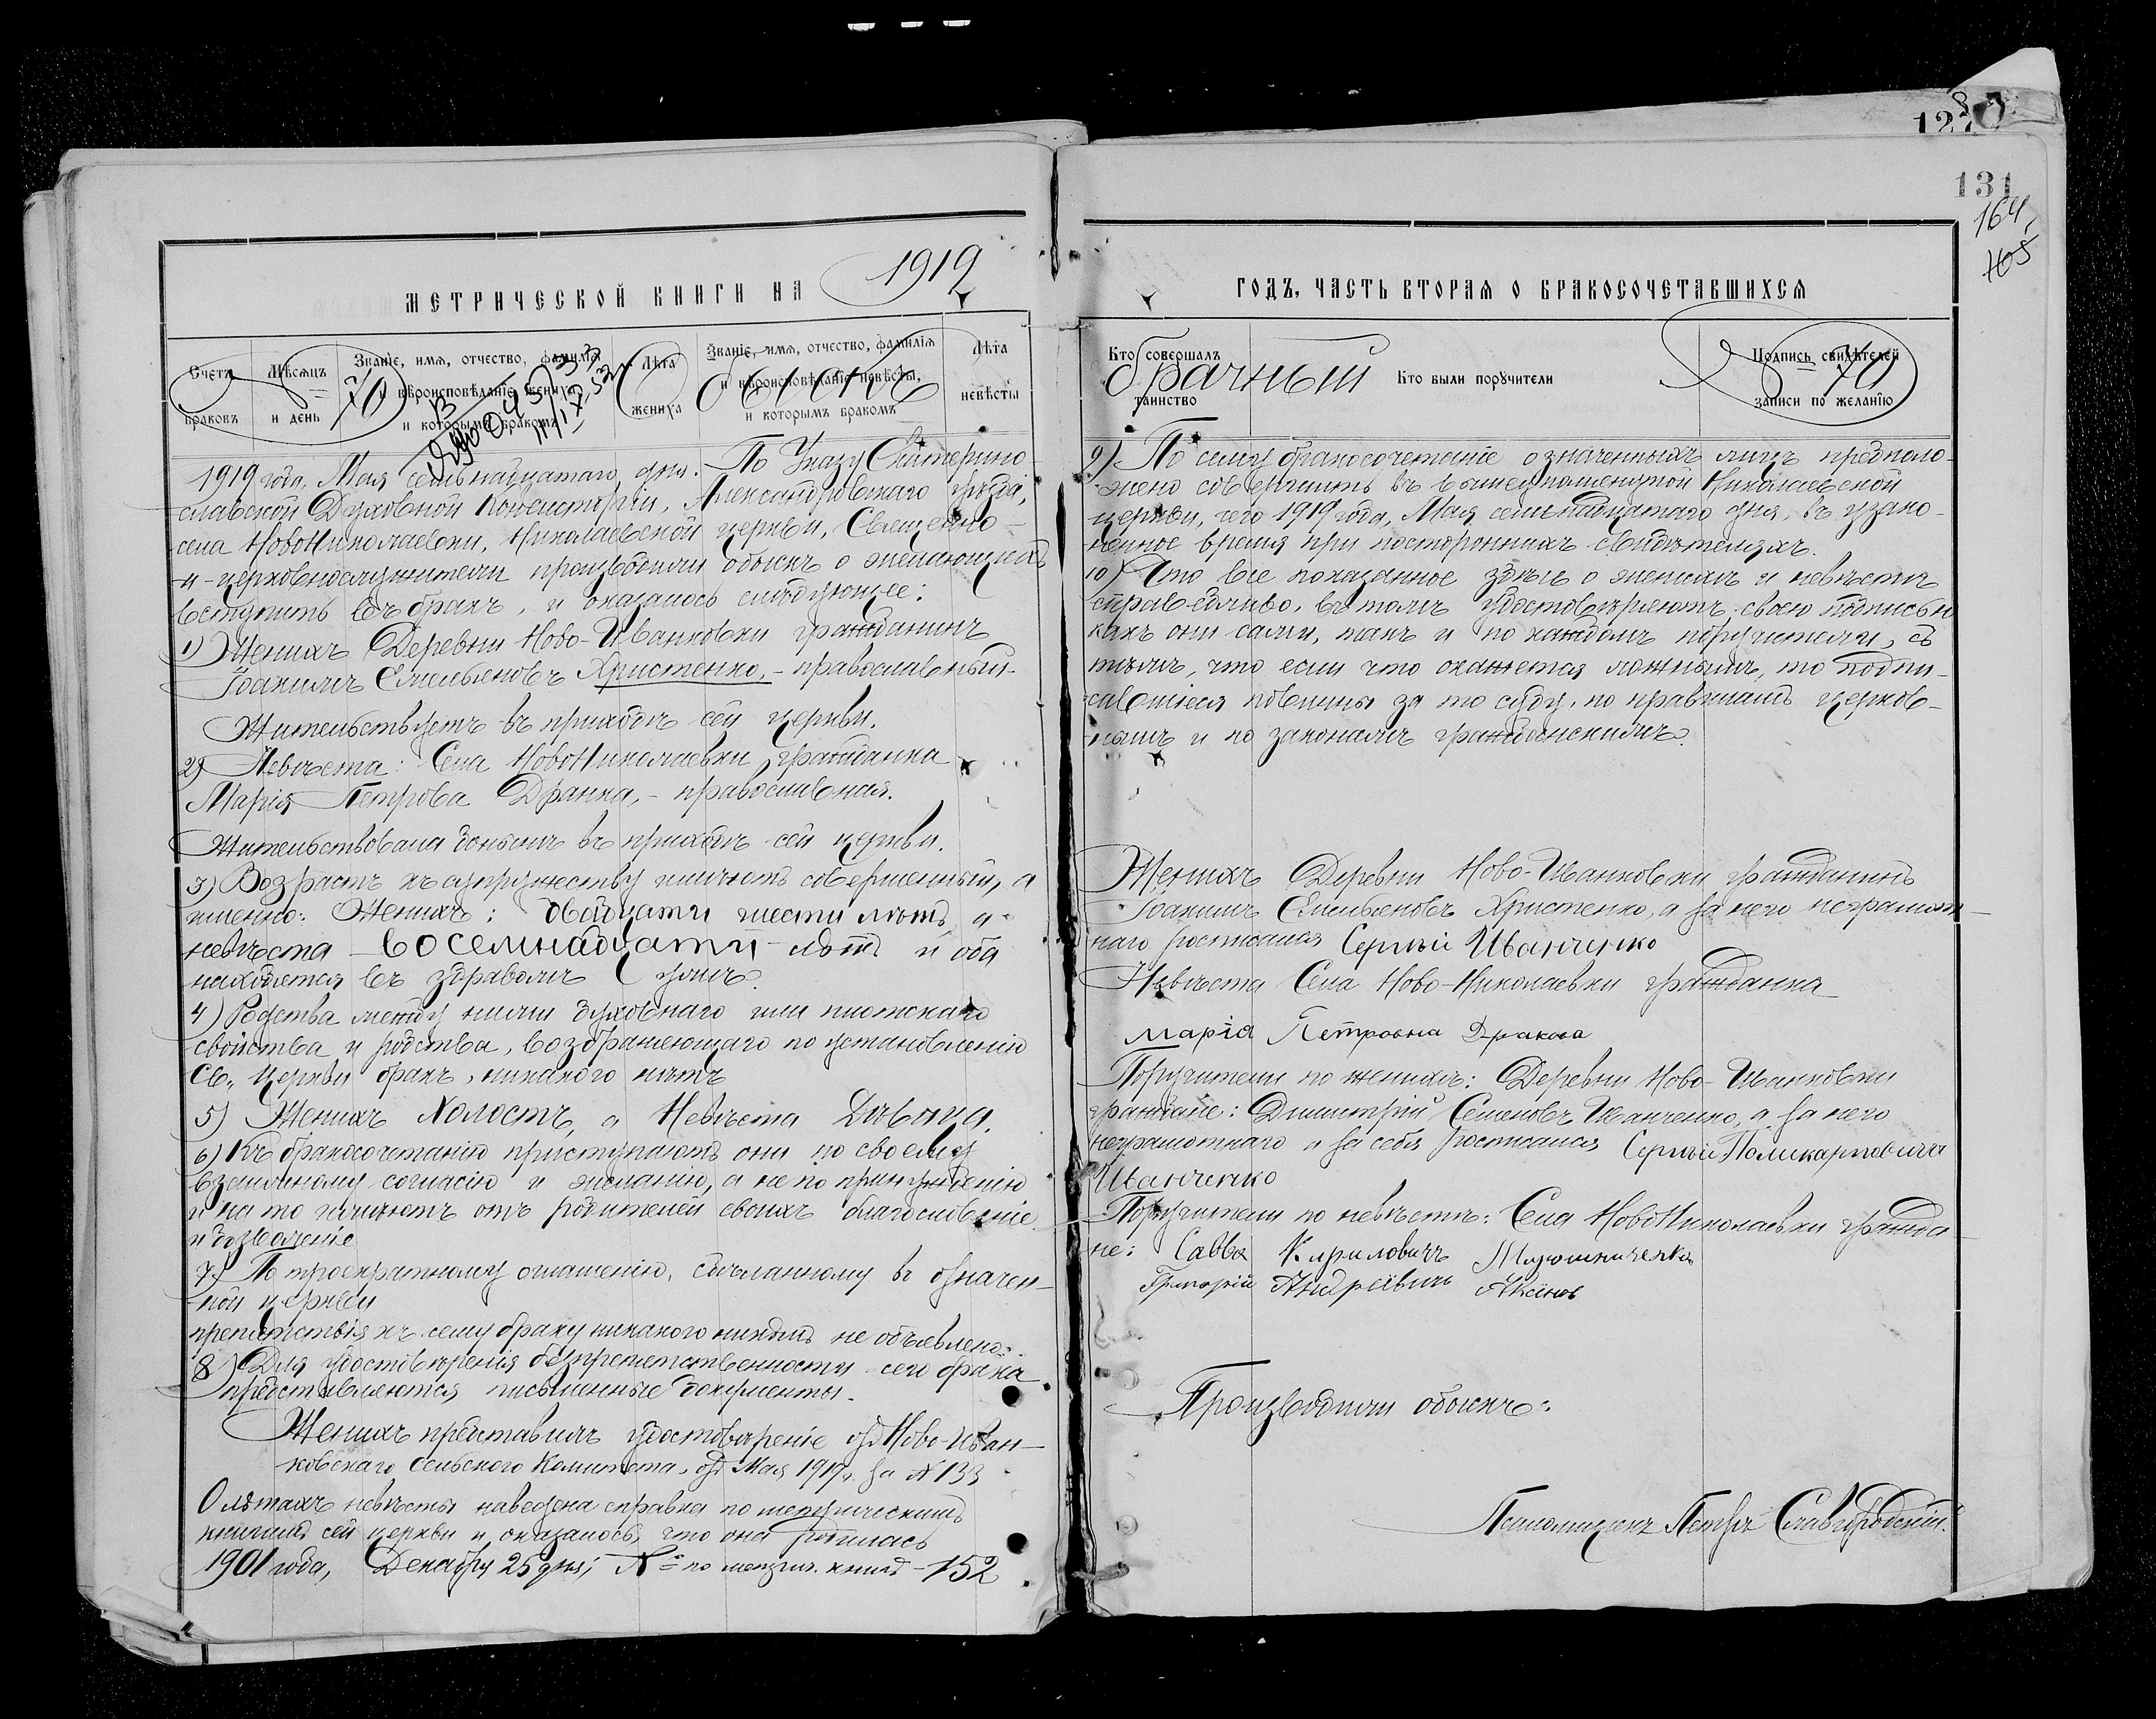 128
131
164,
165
1919
МЕТРИЧЕСКОЙ КНИГИ НА
ГОДЪ, ЧАСТЬ ВТОРАЯ О БРАКОСОЧЕТАВШИХСЯ
Счетъ браковъ
Мѣсяцъ и день
Званіе, имя, отчество, фамилія и вѣроисповѣданіе жениха, и которымъ бракомъ
Лѣта жениха
Званіе, имя, отчество, фамилія и вѣроисповѣданіе невѣсты, и которымъ бракомъ
Лѣта невѣсты
Кто совершалъ таинство
Кто были поручители
Подпись свидѣтелей записи по желанію
70
Обыскъ
брачный
70
1919 года, Мая семьнадцатаго дня. По Указу Екатерино-
славской Духовной Консисторіи, Александровскаго уѣзда,
села НовоНиколаевки, Николаевской церкви, Священно-
и-церковнослужители производили обыскъ о желающихъ
вступить въ бракъ, и оказалось слѣдующее:
1) Женихъ Деревни Ново-Иванковки гражданинъ
Іоакимъ Емельяновъ Христенко,- православный-
Жительствуетъ въ приходѣ сей церкви.
2) Невѣста: Села НовоНиколаевки гражданка
Марія Петрова Дранка,- православная.
Жительствовала донынѣ въ приходѣ сей церкви.
3) Возрастъ къ супружеству имѣютъ совершенный, а
именно: Женихъ: двадцати шести лѣтъ, а
невѣста - восемнадцати - лѣтъ и оба
находятся въ здравомъ умѣ.
4) Родства между ними духовнаго или плотскаго
свойства и родства, возбраняющаго по установленію
Св. Церкви бракъ, никакого нѣтъ
5) Женихъ Холостъ, а Невѣста Дѣвица.
6) Къ бракосочетанію приступаютъ они по своему
взаимному согласію и желанію, а не по принужденію
и на то имѣютъ отъ родителей своихъ благословеніе
и дозволеніе
7) По троекратному оглашенію, сдѣланному въ означен-
ной церкви
препятствія къ сему браку никакого никѣмъ не объявлено.
8) Для удостовѣренія безпрепятственности сего брака
представляются письменные документы.
Женихъ представилъ удостовѣреніе отъ Ново-Иван-
ковскаго Сельского Комитета, отъ Мая 1919 г. за № 133
О лѣтахъ невѣсты наведена справка по метрическимъ
книгамъ сей церкви и оказалось, что она родилась
1901 года, Декабря 25 дня; № по метрич. книгѣ - 152
9) По сему бракосочетаніе означенныхъ лицъ предполо-
жено совершить въ вышеупомянутой Николаевской
церкви, сего 1919 года, Мая семьнадцатаго дня, въ узако-
ненное время при постороннихъ свидѣтеляхъ.
10) Что все показанное здѣсь о женихѣ и невѣстѣ
справедливо, въ томъ удостовѣряютъ своею подписью
какъ они сами, такъ и по каждомъ поручители, съ
тѣмъ, что если что окажется ложнымъ, то подпи-
савшіеся повинны за то суду, по правиламъ церков-
нымъ и по законамъ гражданскимъ.
Женихъ Деревни Ново-Иванковки гражданинъ
Іоакимъ Емельяновъ Христенко, а за него неграмот-
наго росписался Сергѣй Иванченко
Невѣста Села Ново-Николаевки гражданка
Марія Петровна Дракова
Поручители по женихѣ: Деревни Ново-Иванковки
граждане: Димитрій Семеновъ Иванченко, а за него
неграмотнаго и за себя росписался Сергѣй Поликарповичъ
Иванченко
Поручители по невѣстѣ: Села НовоНиколаевки гражда
не: Савва Кириловичъ
Григорій Андреевичъ Аксіонов
Производили обыскъ:
Псаломщикъ Петръ Славгородскій.